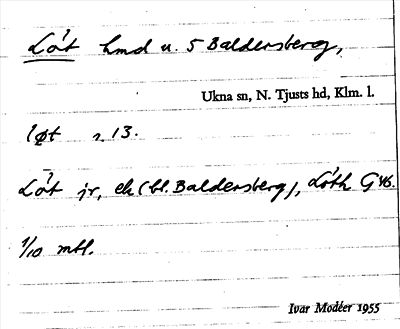 Lòt hmd u. 5 Baldersberg,
Ukna sn, N. Tjusts hd, Klm. l.
løt 13.
Löt jr, ek (bl. Baldersberg), Löth G
1/10 mtl.
Ivar Modéer 1955